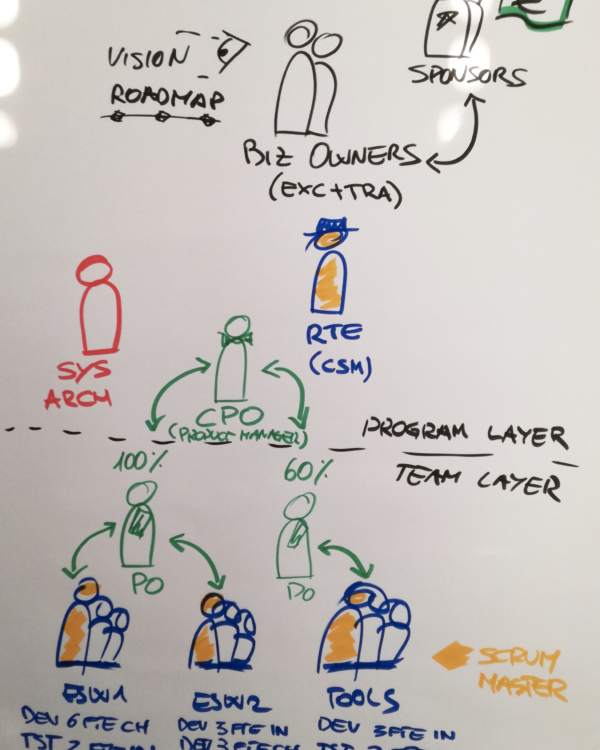 VISION
ROADMAP
SPONSORS
BIZ OWNERS
(EXC+TRA)
RTE
(CSM)
SYS
ARCH
CPO
(PRODUCT MANAGER)
PROGRAM LAYER
TEAM LAYER
100%
60%
PO
PO
SCRUM
MASTER
ESW1
DEV 6 FTE CH
ESW2
DEV 3 FTE IN
DEV 3 FTE CH
TOOLS
DEV 3 FTE IN